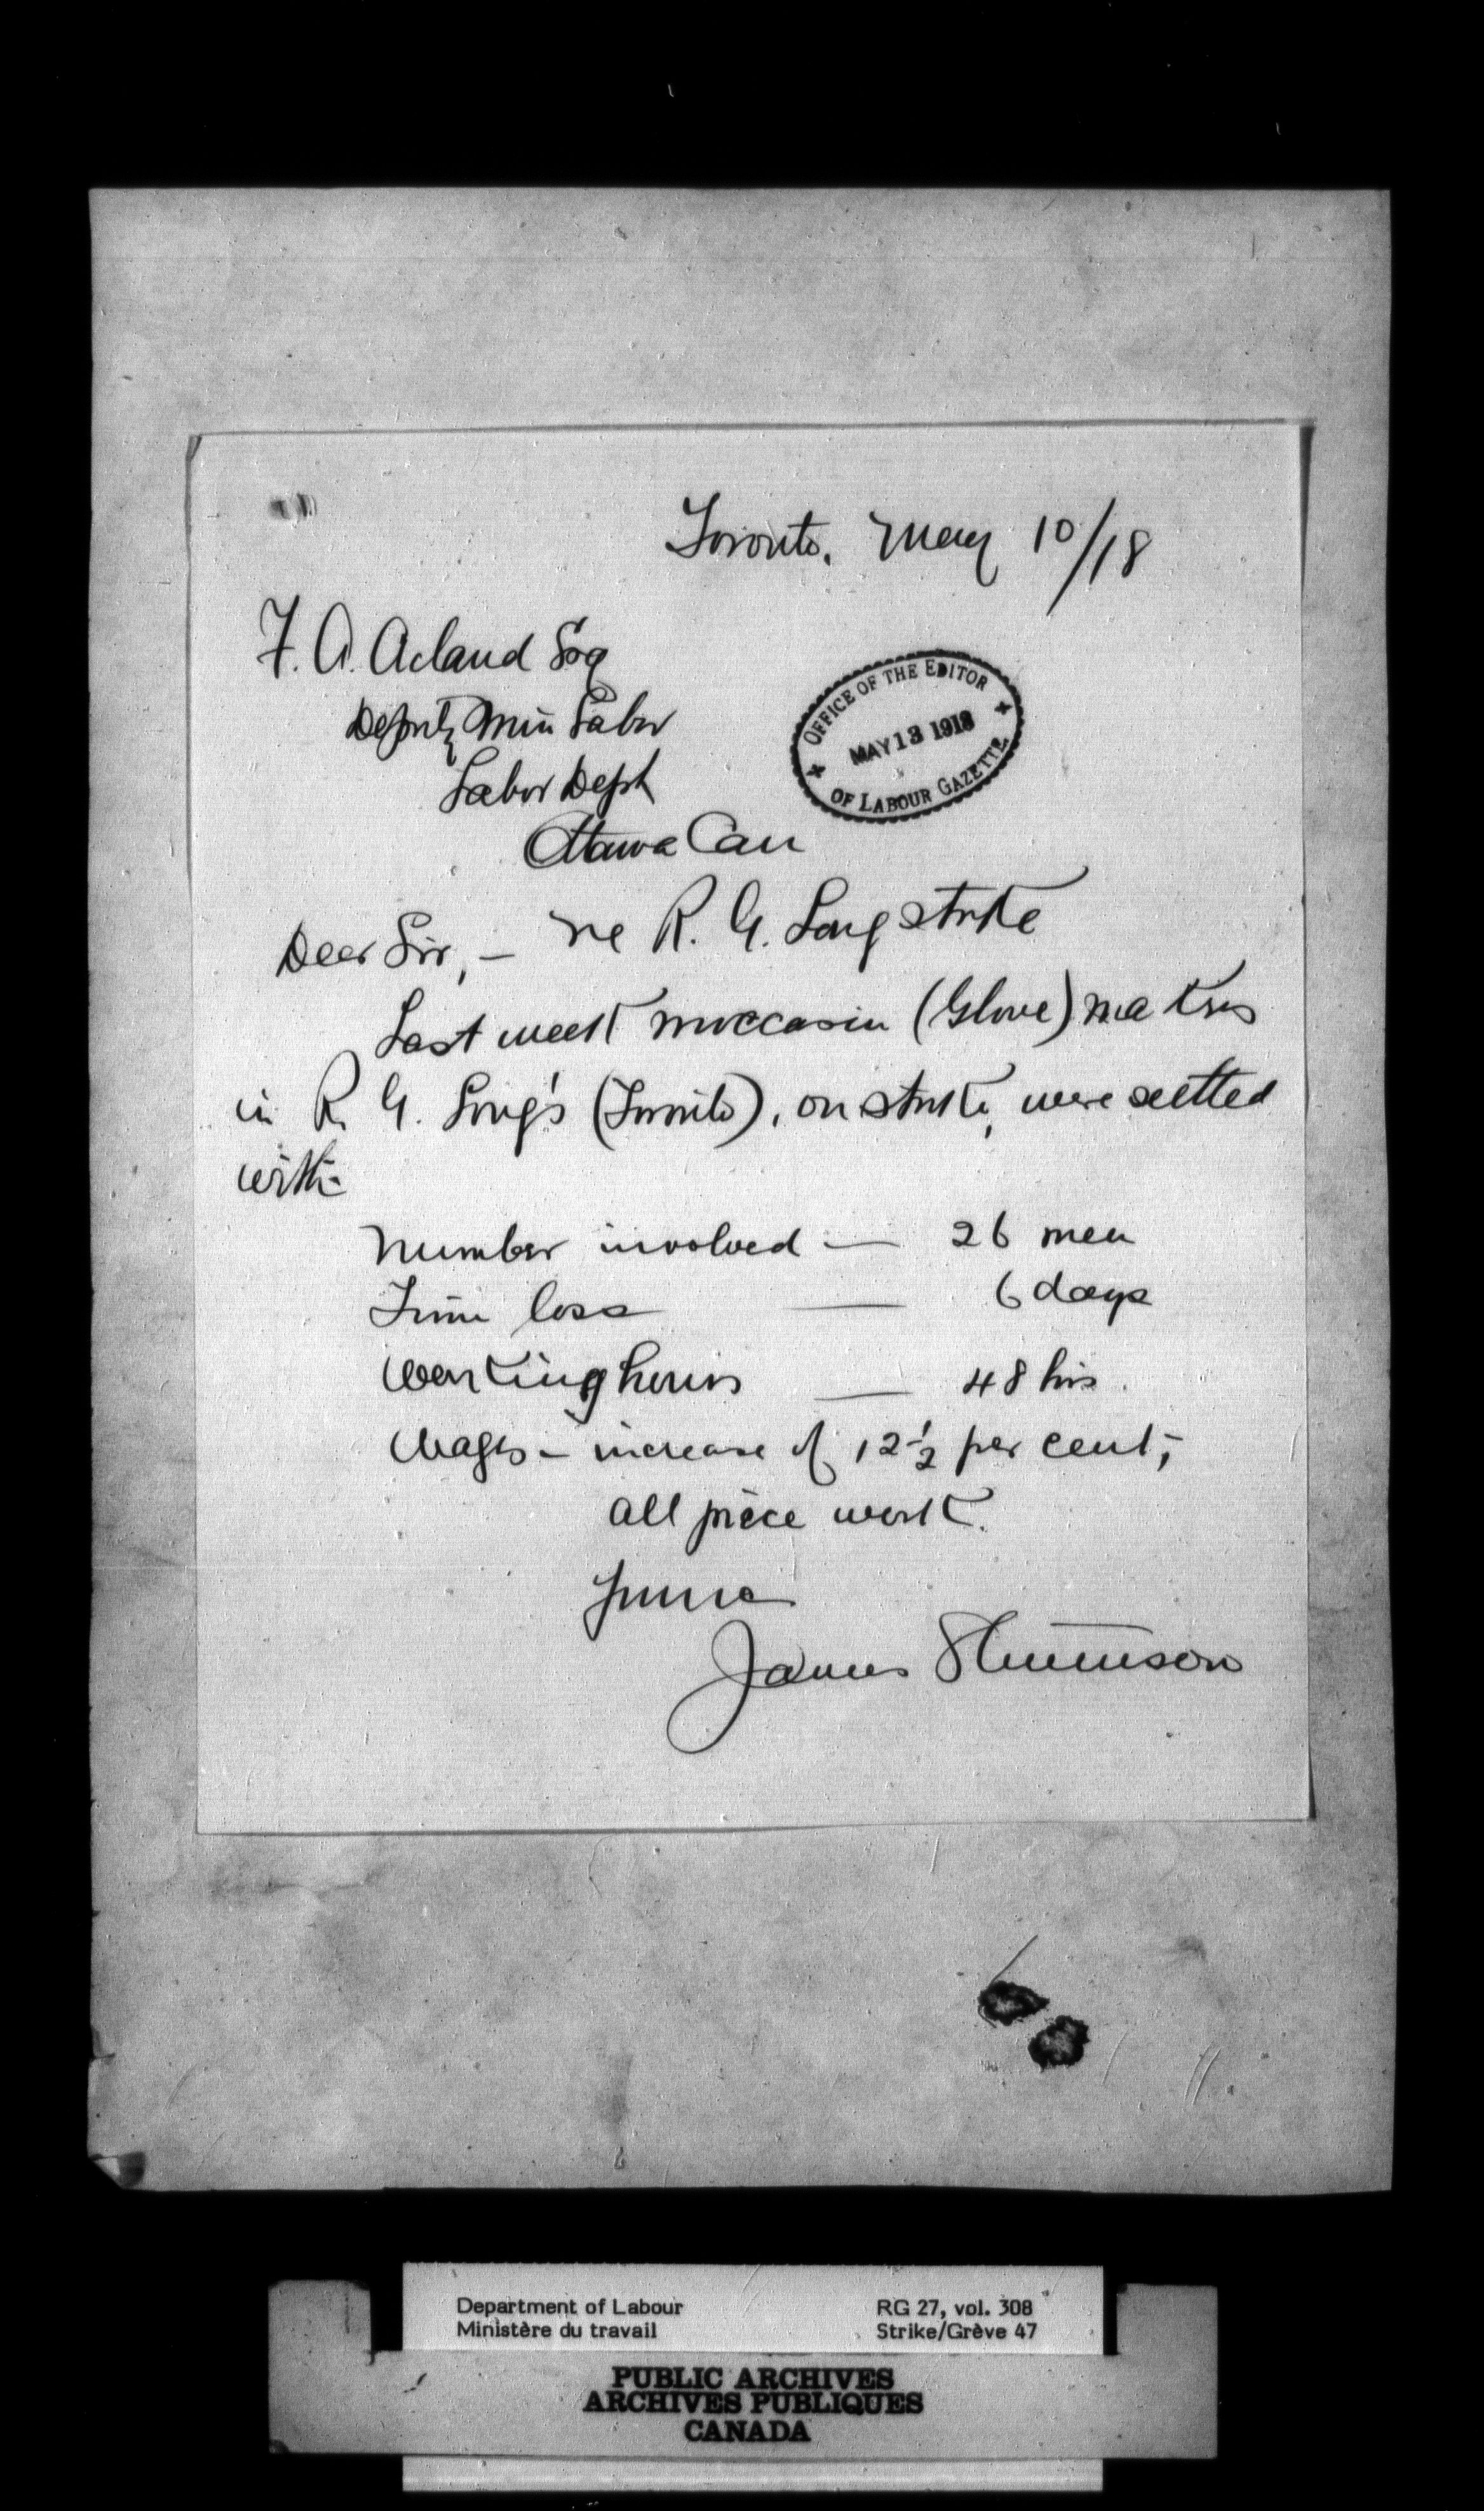 Toronto, May 10/18
F. A. Acland Esq
Deputy Min Labor
Labor Dept
Ottawa Can
OFFICE OF THE EDITOR
MAY 13 1918
OF LABOUR GAZETTE
Dear Sir, — re R. G. Long strike
Last week moccasin (Glove) makers
in R. G. Long's (Toronto), on strike, were settled
with-
Number involved — 26 men
Time loss — 6 days
Working hours — 48 hrs.
Wages - increase of 12 1/2 per cent,
all piece work.
Yours
James Stevenson
Department of Labour
Ministère du travail
RG 27, vol. 308
Strike/Grève 47
PUBLIC ARCHIVES
ARCHIVES PUBLIQUES
CANADA